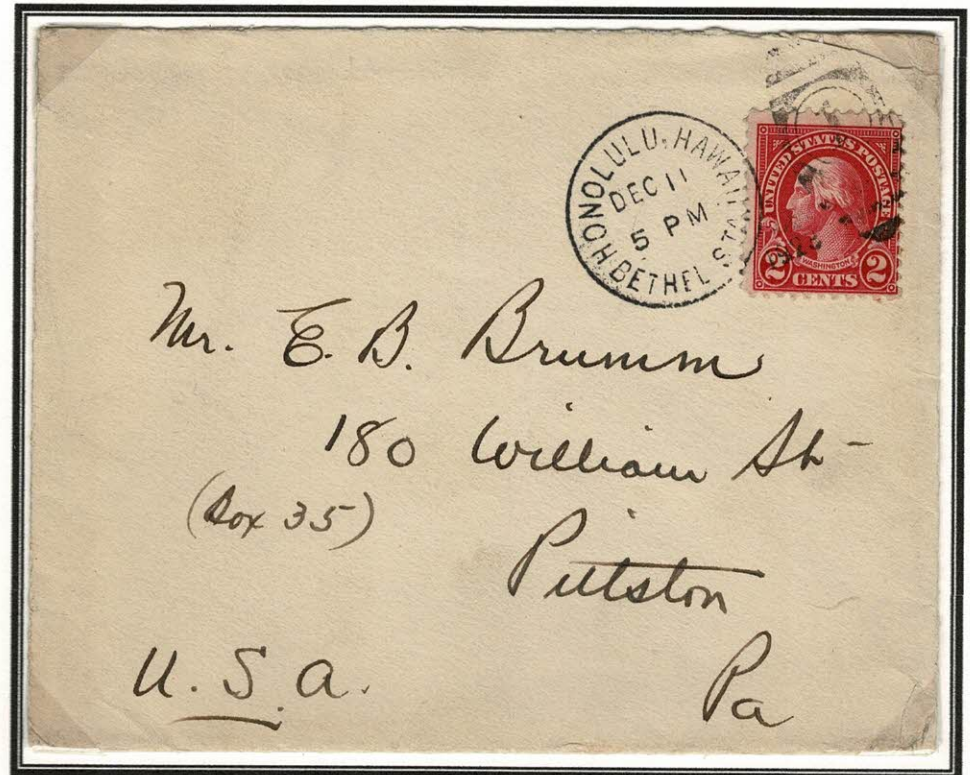 HONOLULU, HAWAII
DEC 11
5 PM
BETHEL STA.
UNITED STATES POSTAGE
WASHINGTON
2 CENTS 2
Mr. E. B. Brumm
180 William St-
(Box 35)
Pittston
U.S.A.
Pa